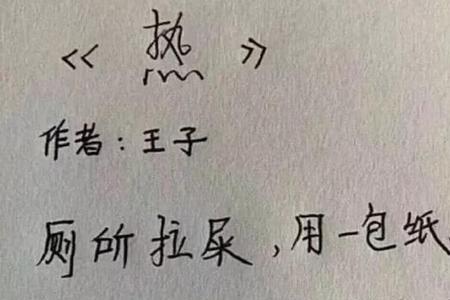 《 热 》
作者：王子
厕所拉尿，用一包纸